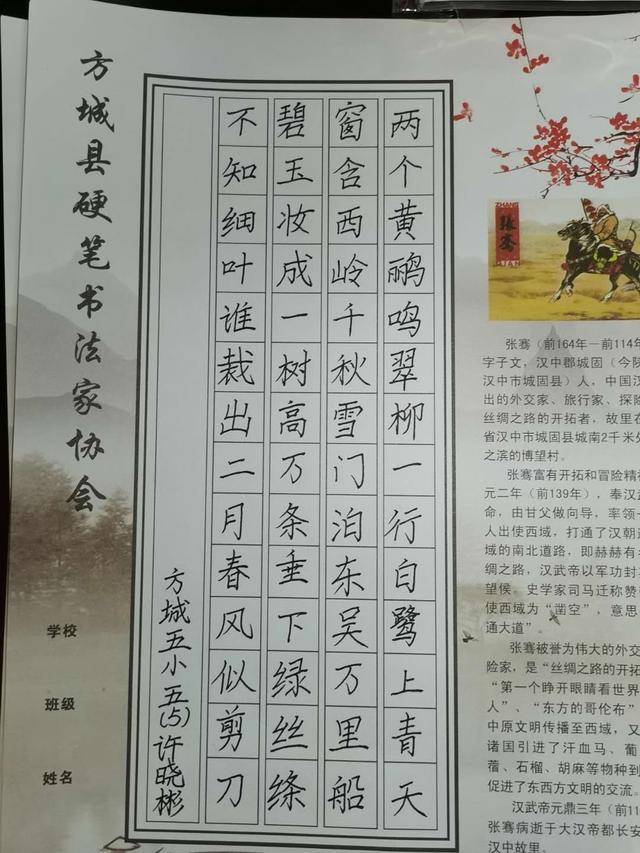 方城县硬笔书法家协会
两个黄鹂鸣翠柳一行白鹭上青天
窗含西岭千秋雪门泊东吴万里船
碧玉妆成一树高万条垂下绿丝绦
不知细叶谁裁出二月春风似剪刀
方城五小五(5)许晓彬
学校
班级
姓名
ZHANG
张骞
QIAN
张骞(前164年－前114年
字子文，汉中郡城固(今陕
汉中市城固县)人，中国汉
出的外交家、旅行家、探险
丝绸之路的开拓者，故里在
省汉中市城固县城南2千米处
之滨的博望村。
张骞富有开拓和冒险精神
元二年(前139年)，奉汉武
命，由甘父做向导，率领一
人出使西域，打通了汉朝通
域的南北道路，即赫赫有名
绸之路，汉武帝以军功封
望侯。史学家司马迁称赞
使西域为“凿空”，意思
通大道”。
张骞被誉为伟大的外交
险家，是“丝绸之路的开拓
“第一个睁开眼睛看世界
人”、“东方的哥伦布”
中原文明传播至西域，又
诸国引进了汗血马、葡
蓿、石榴、胡麻等物种到
促进了东西方文明的交流。
汉武帝元鼎三年(前11
张骞病逝于大汉帝都长安
汉中故里。